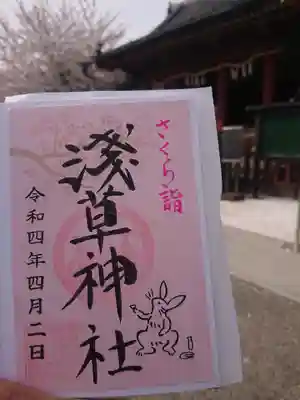 さくら詣
淺草神社
令和四年四月二日